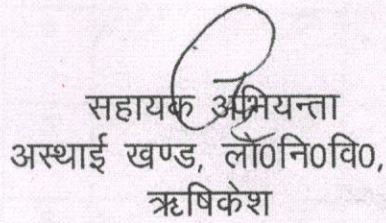 सहायक अभियन्ता
अस्थाई खण्ड, लो०नि०वि०,
ऋषिकेश